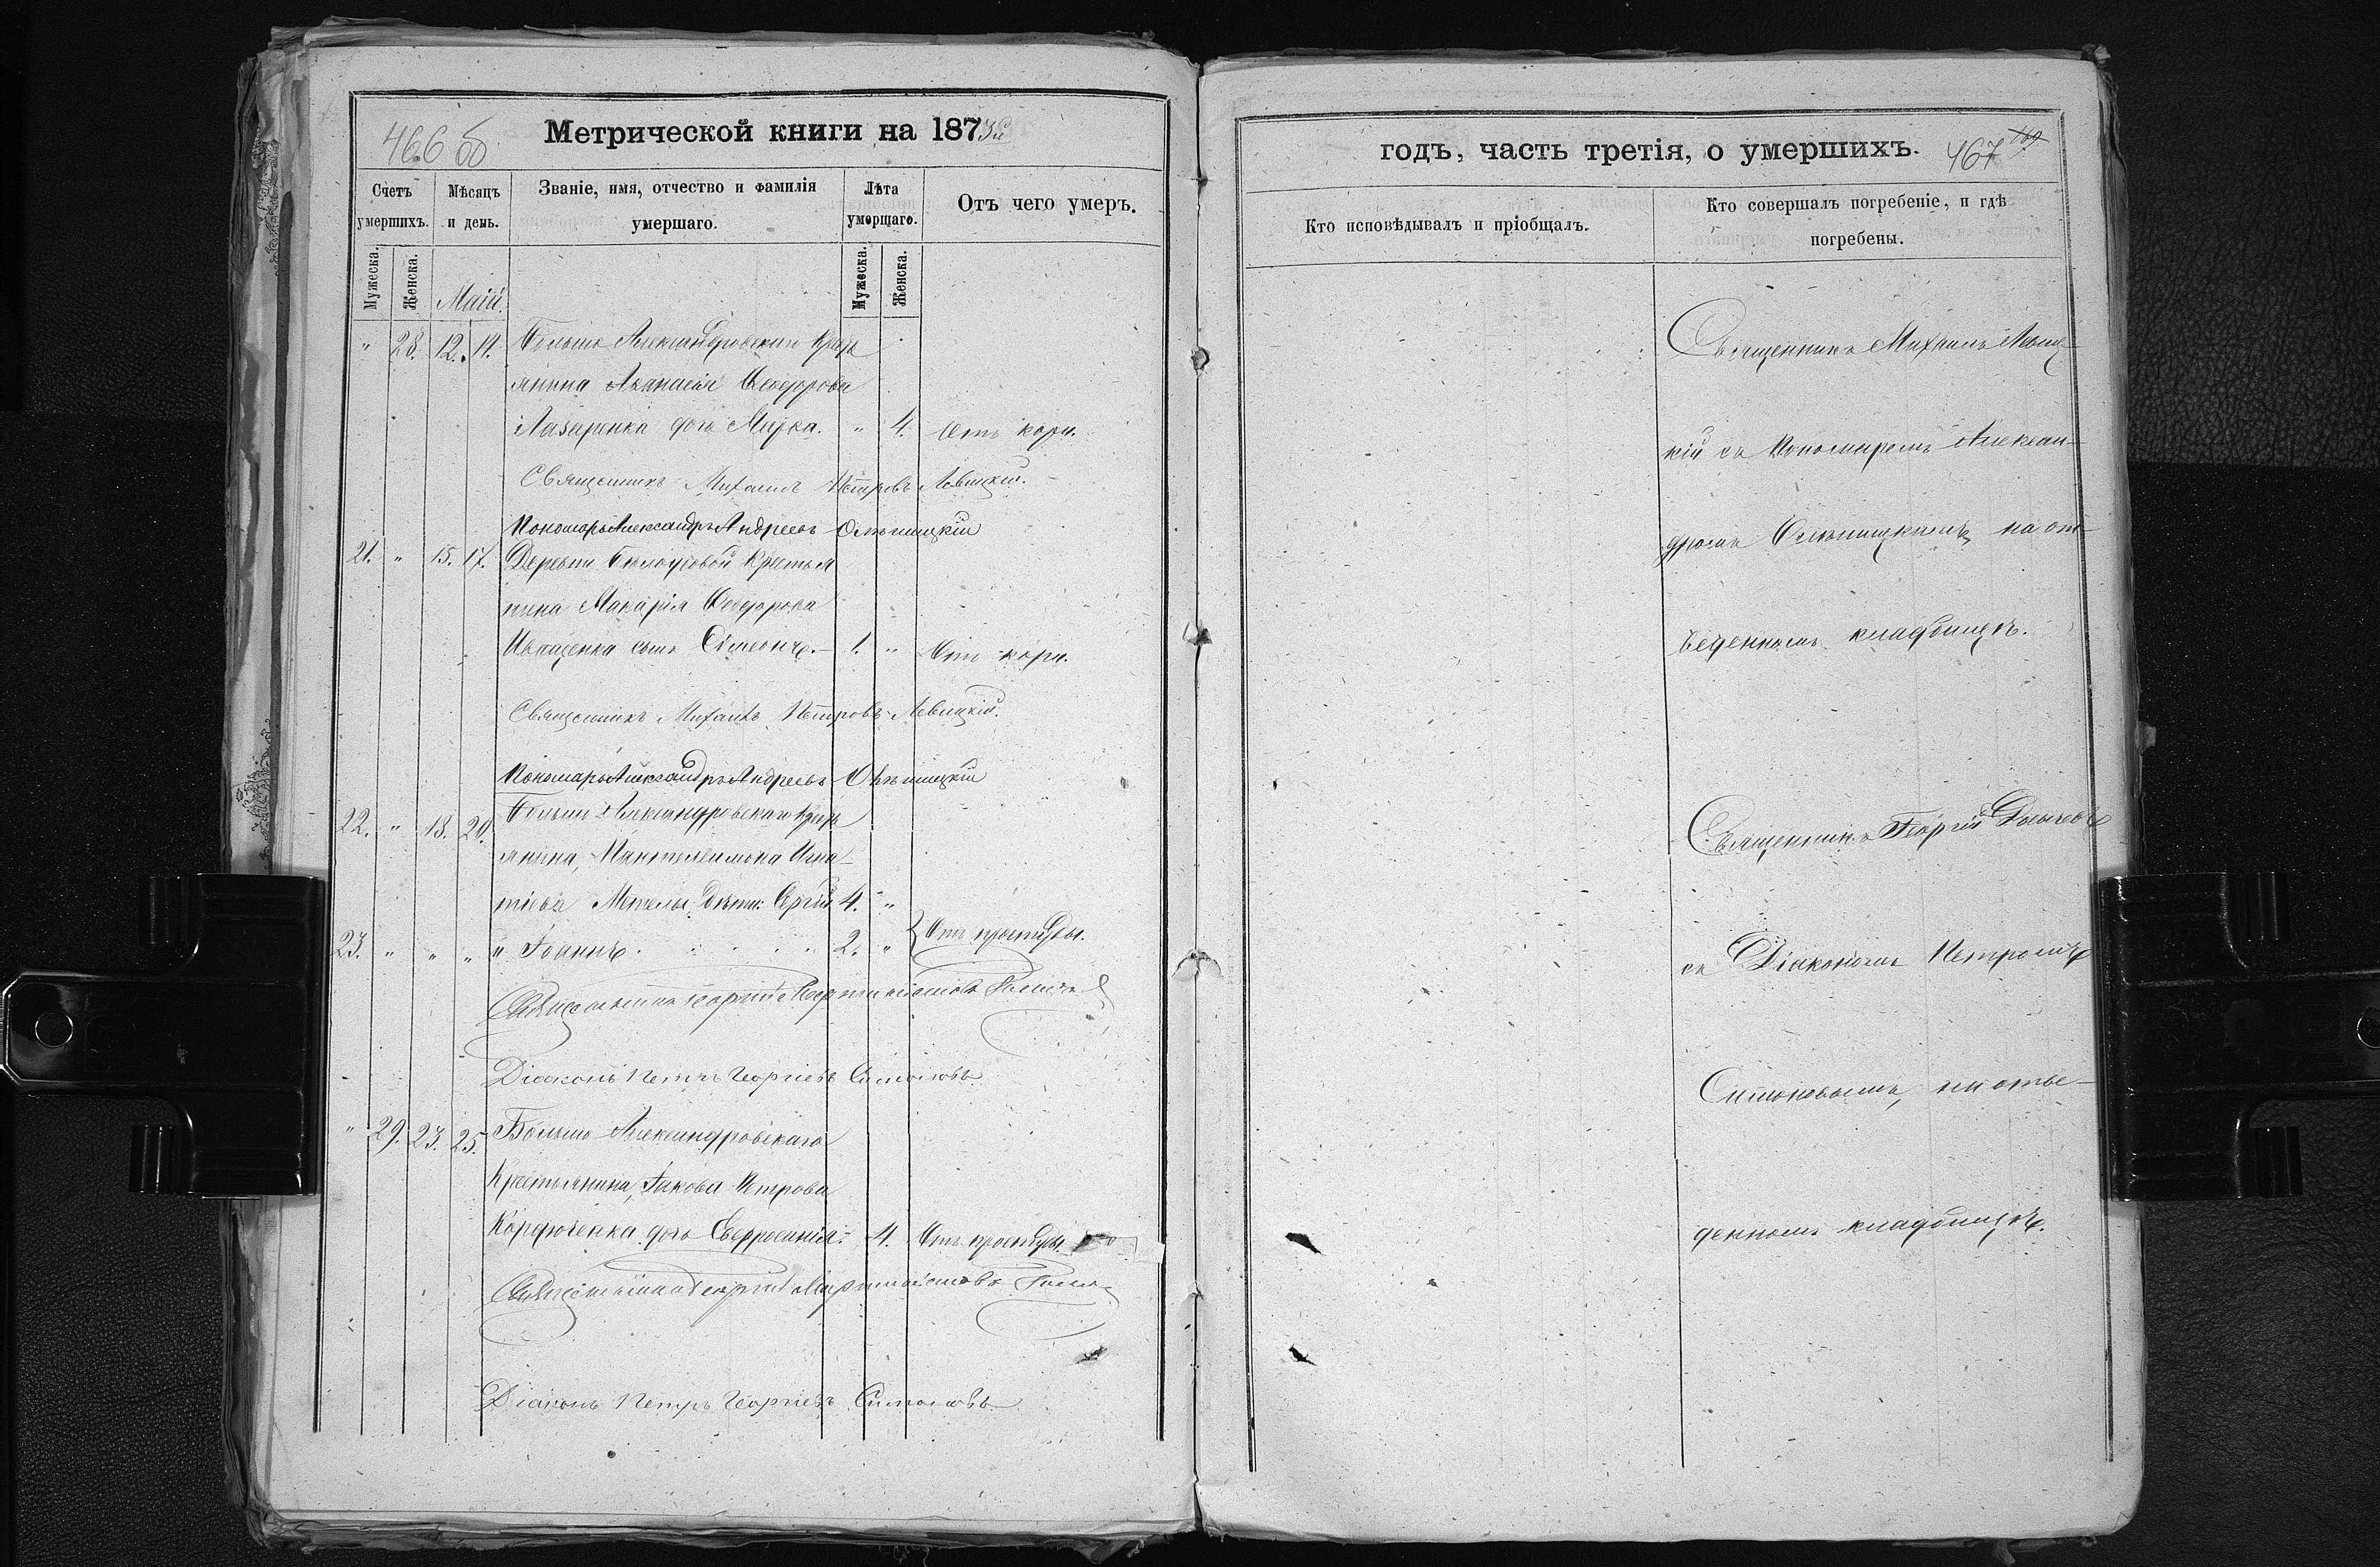 466 об
Метрической книги на 1873й
Счетъ умершихъ.
Мѣсяцъ и день.
Званіе, имя, отчество и фамилія умершаго.
Лѣта умершаго.
Отъ чего умеръ.
Мужеска.
Женска.
Маій.
Мужеска.
Женска.
" 28. 12. 14. Больше Александровскаго Кресть
янина Аѳанасія Ѳеодорова
Лазаренка дочь Марѳа. " 4. Отъ кори.
Священникъ Михаилъ Петровъ Левицкій.
Пономарь Александръ Андреевъ
21. " 15. 17. Деревни Крестья
нина Макарія Ѳеодорова
Иващенка сынъ Симеонъ. 1. " Отъ кори.
Священникъ Михаилъ Петровъ Левицкій.
Пономарь Александръ Андреевъ
22. " 18. 20. Больше Александровскаго Кресть
янина, Пантелеимона Игна-
тіева дѣти: Сергій 4. "
23. " " " " Іоаннъ 2. " Отъ простуды.
Священникъ Георгій
Діаконъ Петръ Георгіевъ Симоновъ
" 29. 23. 25. Больше Александровскаго
Крестьянина, Іакова Петрова
дочь Евфросинія. 4. Отъ простуды.
Священникъ Георгій
Діаконъ Петръ Георгіевъ Симоновъ
годъ, часть третія, о умершихъ.
467
Кто исповѣдывалъ и пріобщалъ.
Кто совершалъ погребеніе, и гдѣ погребены.
Священникъ Михаилъ Левиц
кій съ Пономаремъ Алексан-
дромъ на от-
веденномъ кладбищѣ.
Священникъ Георгій
съ Діакономъ Петромъ
Симоновымъ, на отве-
денномъ кладбищѣ.